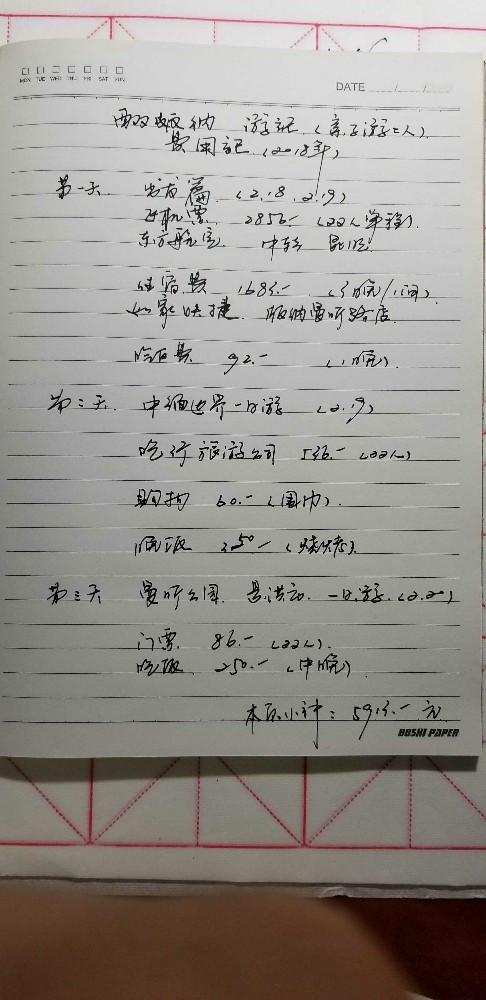 MON TUE WED THU FRI SAT SUN
DATE / /
西双版纳 游记 (亲子游二人)
费用记 (2018年)
第一天 出发篇 (2.18 2.19)
飞机票 2856.- (2人单程)
东方航空 中转 昆明
住宿费 (5晚/1间)
如家快捷 版纳曼听路店
吃饭费 92.- (1晚)
第二天 中缅边界一日游 (2.19)
吃行旅游公司 536.- (2人)
购物 60.- (围巾)
晚饭 250.- (烧烤)
第三天 曼听公园 景洪市 一日游 (2.20)
门票 86.- (2人)
吃饭 250.- (中晚)
本页小计: 元
BOSHI PAPER